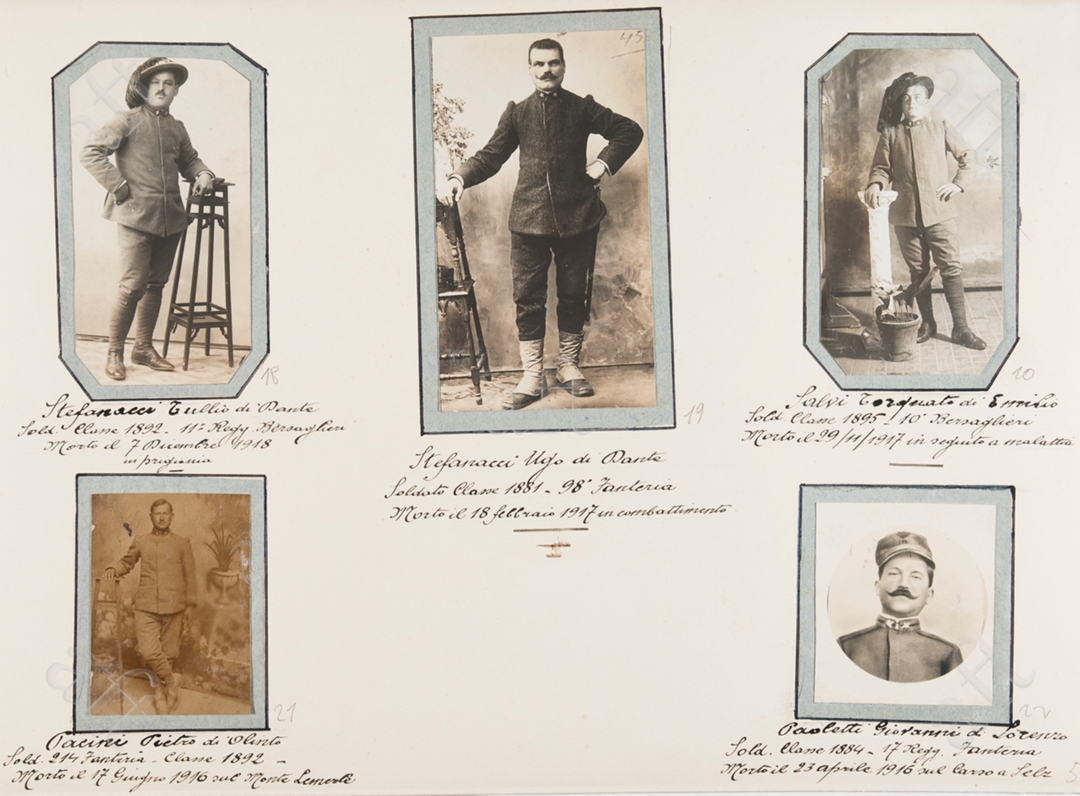 45
18
Stefanacci Tullio di Dante
Sold. Classe 1892 - 11° Regg Bersaglieri
Morto il 7 Dicembre 1918
in prigionia
19
Stefanacci Ugo di Dante
Soldato Classe 1881 - 98° Fanteria
Morto il 18 febbraio 1917 in combattimento
20
Salvi Torquato di Emilio
Sold. Classe 1895 - 10° Bersaglieri
Morto il 29/11/1917 in seguito a malattia
21
Pacini Pietro di Olinto
Sold. 214 Fanteria - Classe 1892 -
Morto il 17 Giugno 1916 sul Monte Lemerle
22
Paoletti Giovanni di Lorenzo
Sold. Classe 1884 - 17 Regg. Fanteria
Morto il 23 aprile 1916 sul Carso a Selz
5